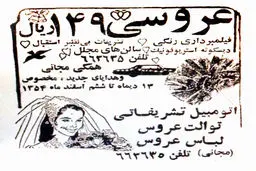 عروسی ۱۴۹ ریال
فیلمبرداری رنگی تشریفات بی‌نظیر استقبال
دیسکوته استریوفونیک سالن‌های مجلل
تلفن ۶۶۳۶۳۵
همگی مجانی
وهدایای جدید، مخصوص
۱۳ دیماه تا ششم اسفند ماه ۱۳۵۴
اتومبیل تشریفاتی
توالت عروس
لباس عروس
(مجانی) تلفن ۶۶۳۶۳۵